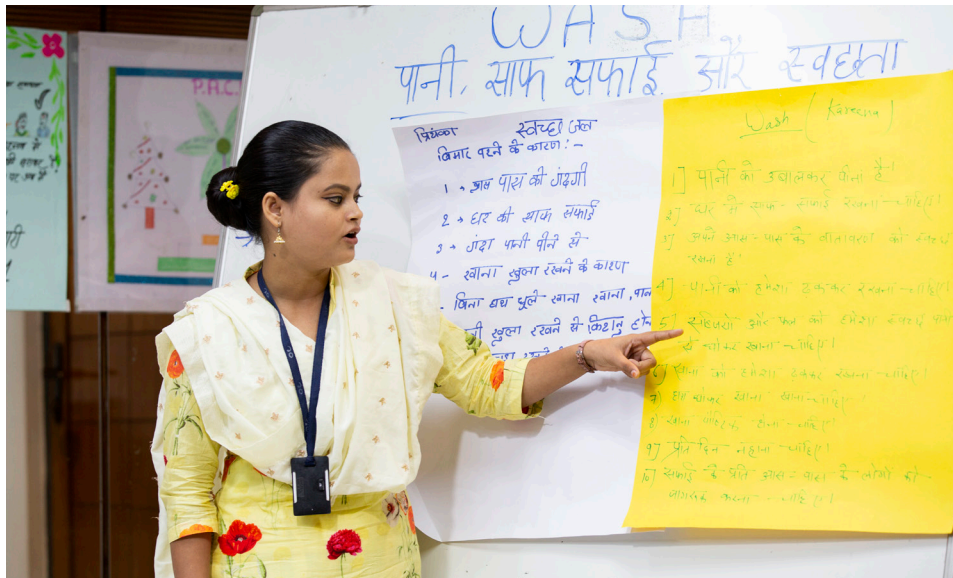 WASH
पानी, साफ सफाई और स्वछता
P.H.C
प्रियंका स्वच्छ जल
बिमार परने के कारण :-
1 → आस पास की गंदगी
2 → घर की साफ सफाई
3 → गंदा पानी पीने से
4 - खाना खुला रखने के कारण
- बिना हाथ धूले खाना खाना, पान
खुला रखने से किटानु होन
Wash (Kareena)
1] पानी को उबालकर पीना है।
2] घर में साफ-सफाई रखना चाहिए।
3] अपने आस-पास के वातावरण को स्वच्छ
रखना है।
4] पानी को हमेशा ढककर रखना चाहिए।
5] सब्जियों और फल को हमेशा स्वच्छ पानी
से धोकर खाना चाहिए।
6] खाना को हमेशा ढककर रखना चाहिए।
7) हाथ धोकर खाना खाना चाहिए।
8) खाना होना चाहिए।
9) प्रति दिन नहाना चाहिए।
10) सफाई के प्रति आस-पास के लोगों को
जागरूक करना चाहिए।